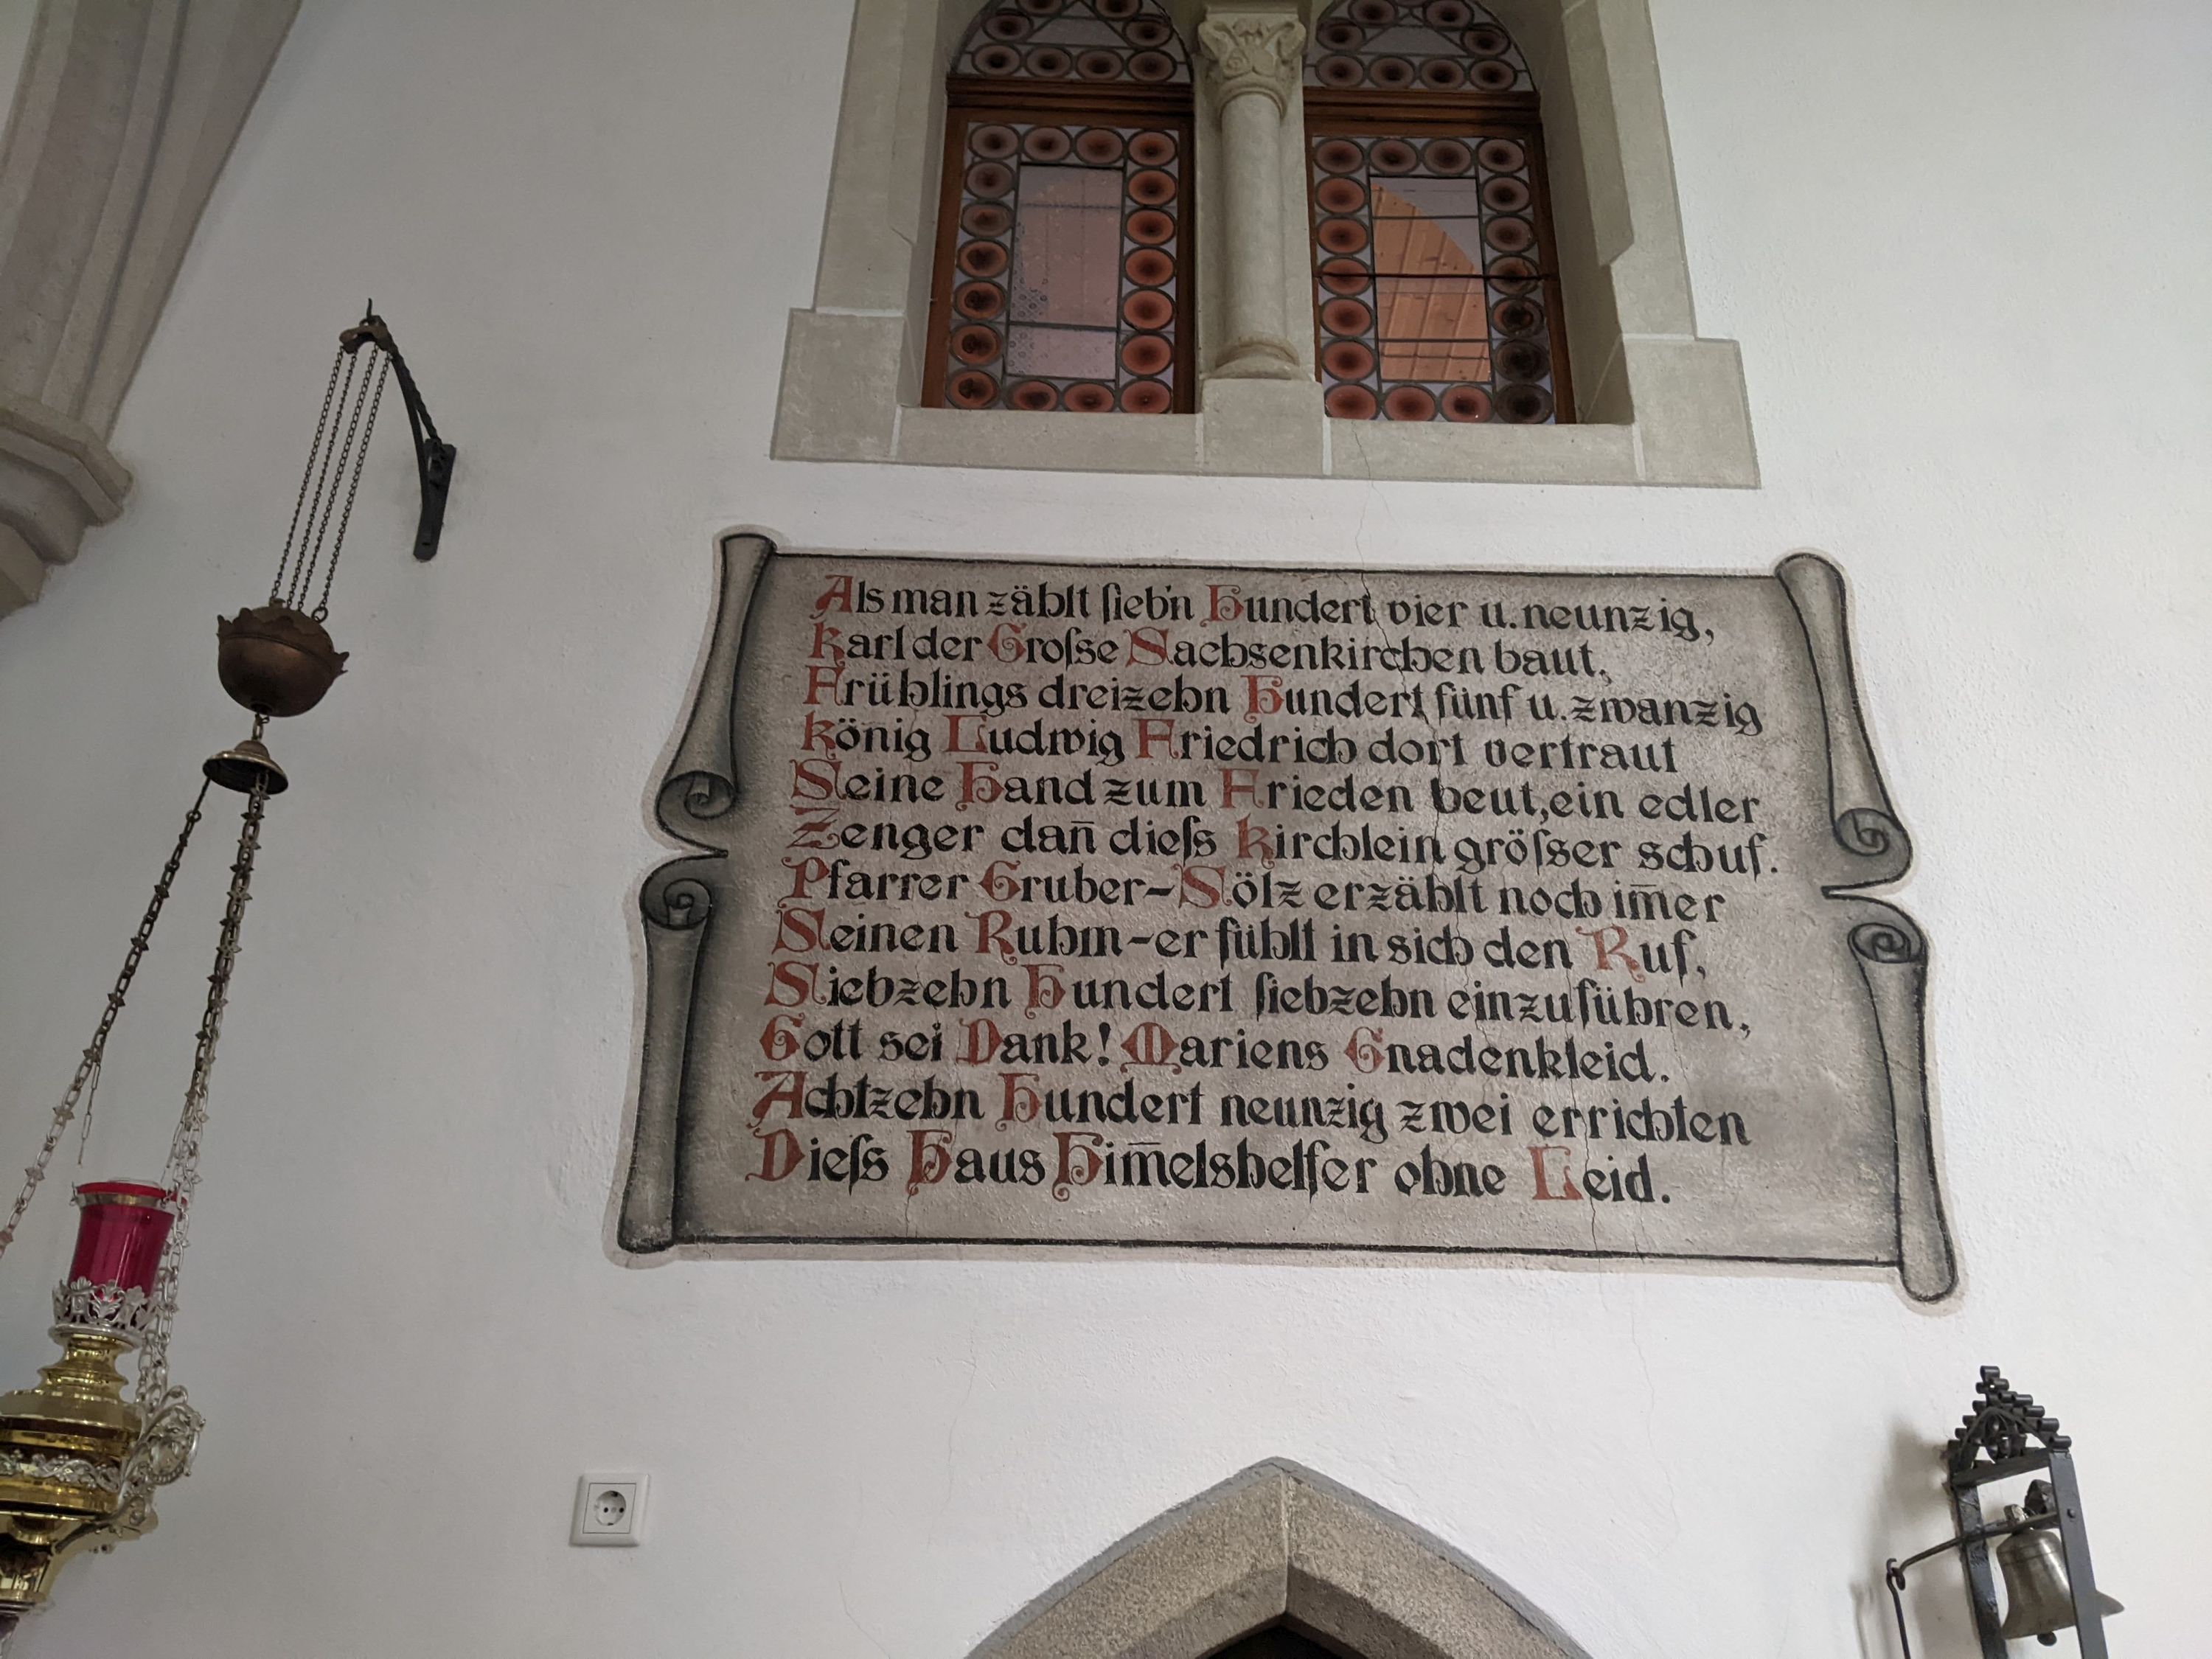 Als man zählt ſieb'n Hundert vier u. neunzig,
Karl der Groſse Sachsenkirchen baut,
Frühlings dreizehn Hundert fünf u. zwanzig
König Ludwig Friedrich dort vertraut
Seine Hand zum Frieden beut, ein edler
Zenger dan̄ dieſs Kirchlein gröſser schuf.
Pfarrer Gruber-Sölz erzählt noch im̄er
Seinen Ruhm-er fühlt in sich den Ruf,
Siebzehn Hundert ſiebzehn einzuführen,
Gott sei Dank! Mariens Gnadenkleid.
Achtzehn Hundert neunzig zwei errichten
Dieſs Haus Him̄elshelfer ohne Leid.